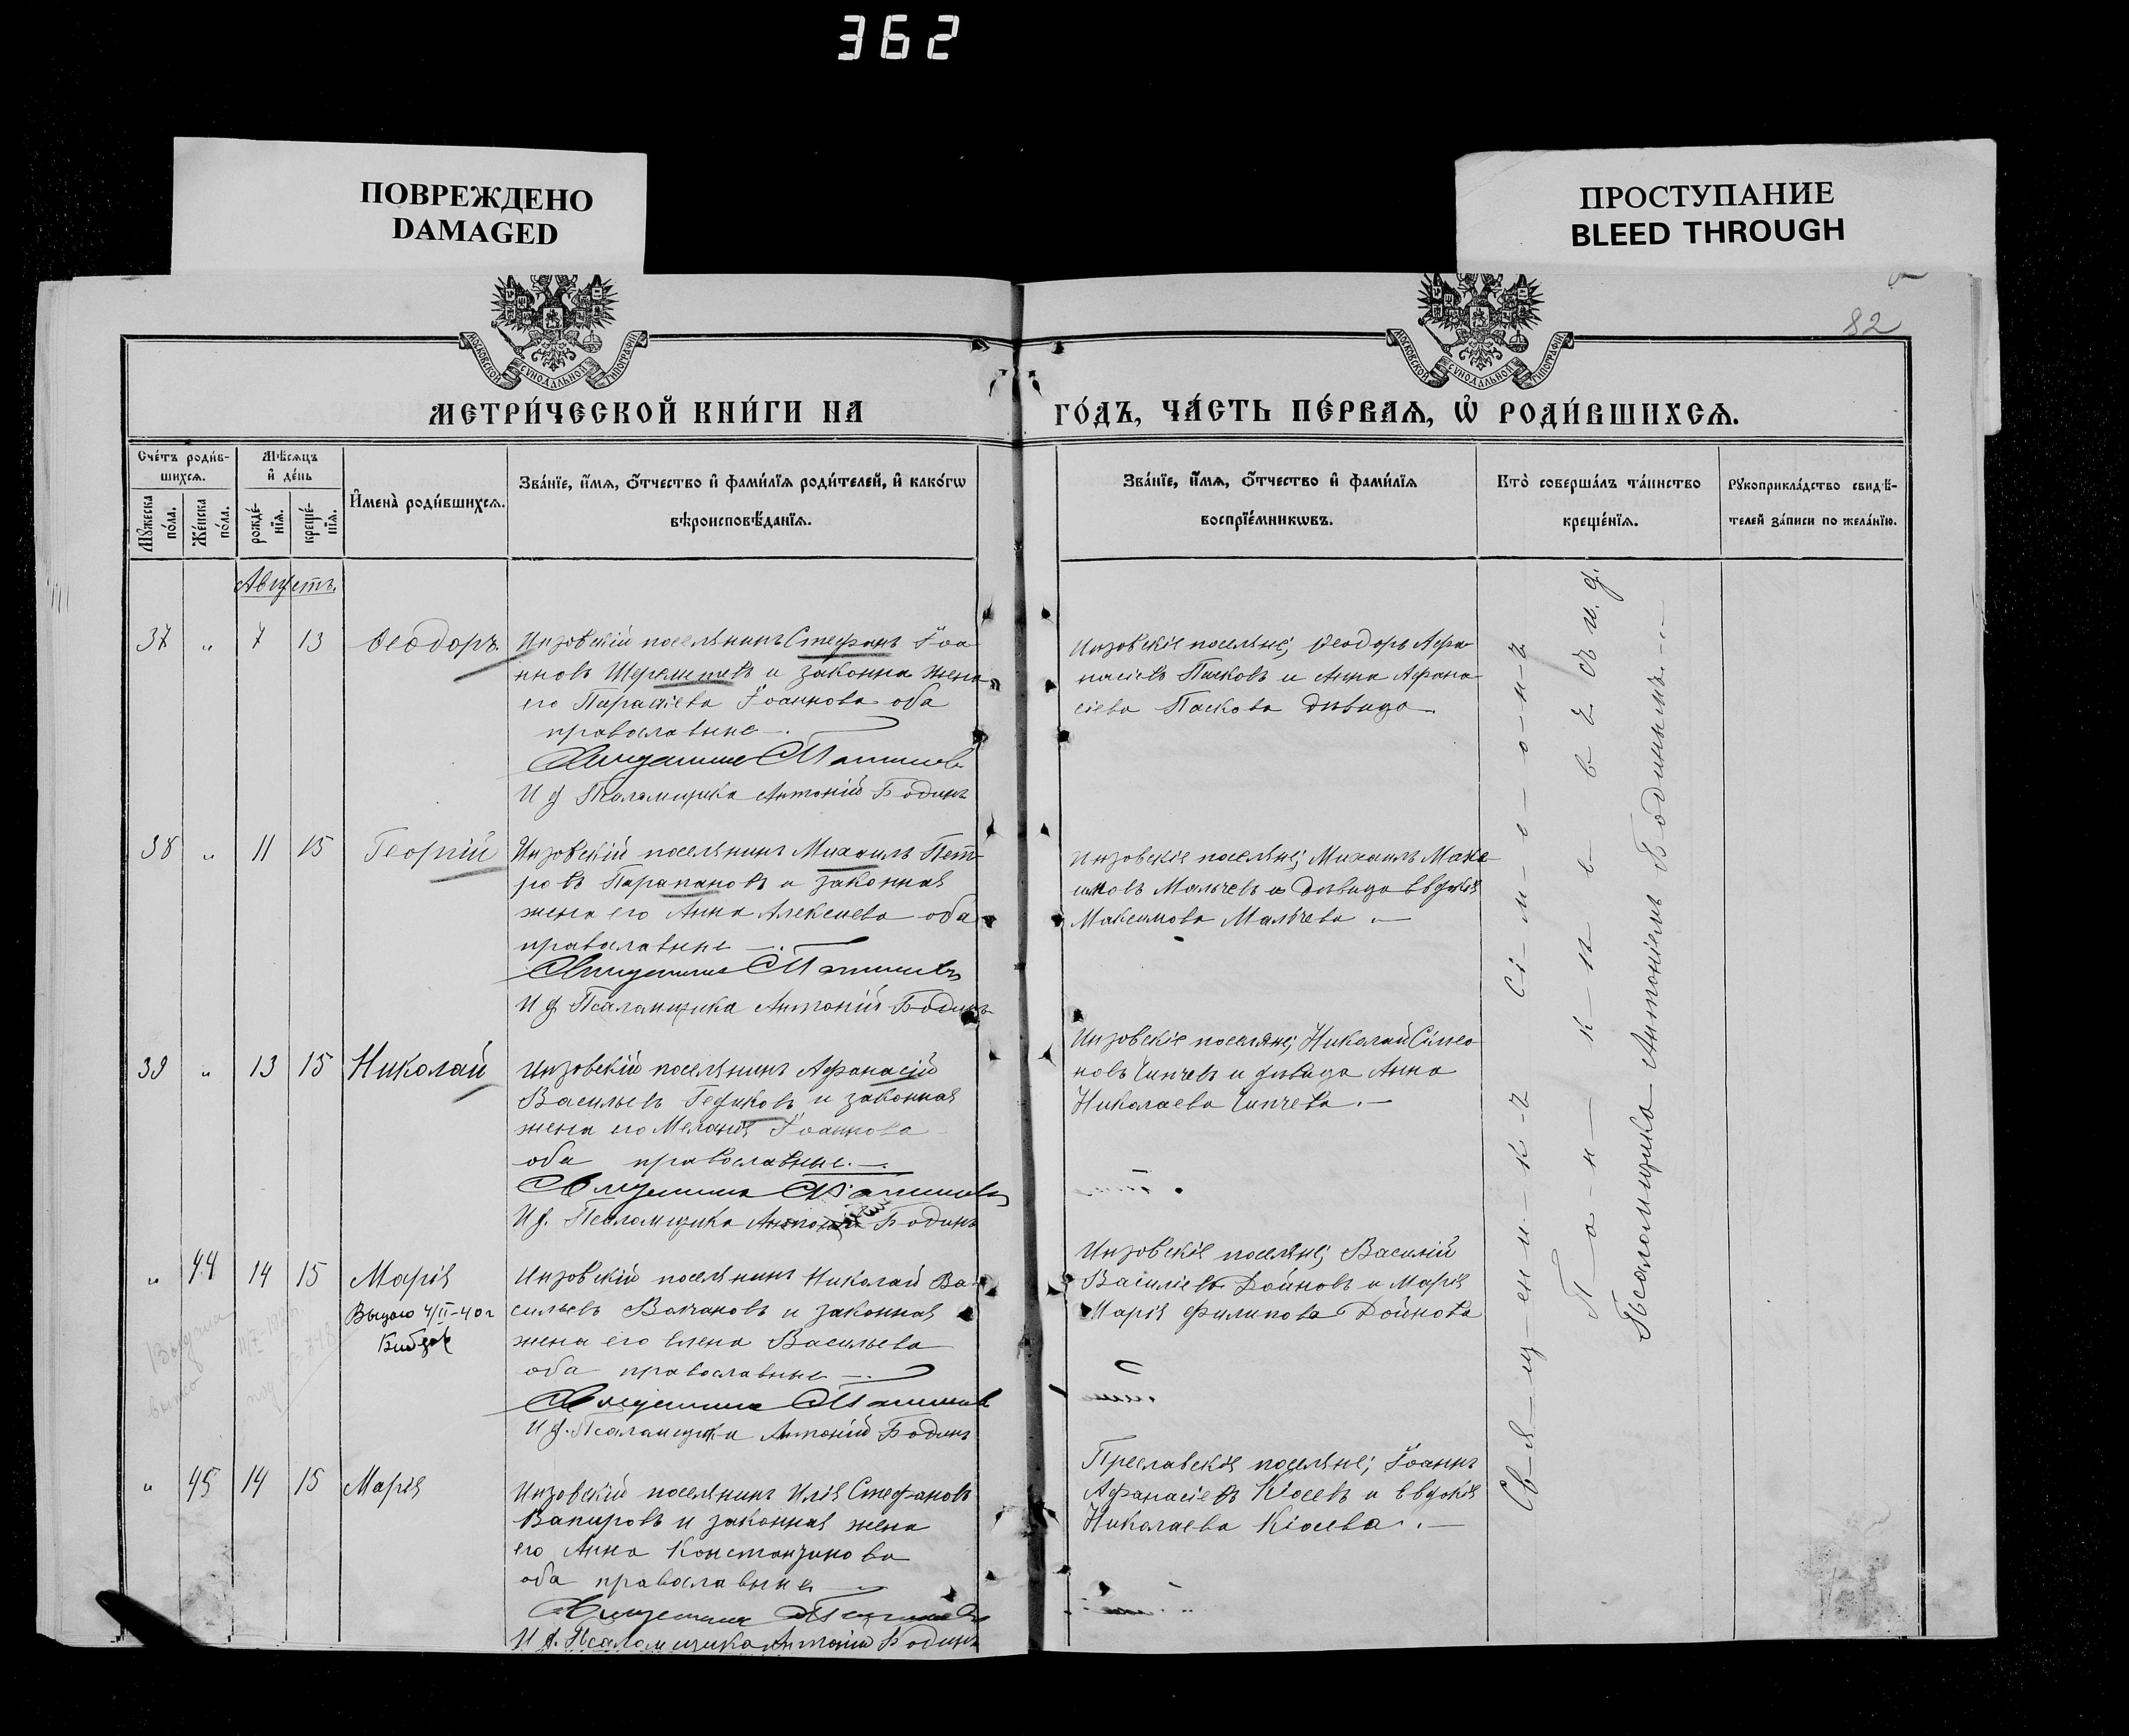 362
ПОВРЕЖДЕНО
DAMAGED
ПРОСТУПАНИЕ
BLEED THROUGH
82
МОСКОВСКОЙ СѴНОДАЛЬНОЙ ТИПОГРАФІИ
МОСКОВСКОЙ СѴНОДАЛЬНОЙ ТИПОГРАФІИ
МЕТРИ́ЧЕСКОЙ КНИ́ГИ НА
ГО́ДЪ, ЧА́СТЬ ПЕ́РВАѦ, Ѡ҆ РОДИ́ВШИХСѦ.
Сче́тъ роди́в-
шихсѧ.
Мꙋ́жеска по́ла.
Же́нска по́ла.
Мѣ́сѧцъ
и҆ де́нь
рожде́-
нїѧ.
креще́-
нїѧ.
И҆мена̀ роди́вшихсѧ.
Зва́нїе, и҆́мѧ, ѻ҆́тчество и҆ фами́лїѧ роди́телей, и҆ како́гѡ
вѣроисповѣ́данїѧ.
Зва́нїе, и҆́мѧ, ѻ҆́тчество и҆ фами́лїѧ
воспрїе́мникѡвъ.
Кто̀ соверша́лъ та́инство
креще́нїѧ.
Рꙋкоприкла́дство свидѣ́-
телей за́писи по жела́нїю.
Августъ.
37 " 7 13 Ѳеодоръ.
Инзовскій поселянинъ Стефанъ Іоа-
нновъ Шереметевъ и законна жена
его Параскева Іоаннова оба
православные —.
Священникъ
И д Псаломщика Антоній Бодинъ
Инзовскіе поселяне; Ѳеодоръ Афа-
насіевъ Пасковъ и Анна Афана-
сіева Паскова дѣвица
38 " 11 15 Георгій
Инзовскій поселянинъ Михаилъ Пет-
ровъ Парапановъ и законная
жена его Анна Алексеева оба
православные —.
Священникъ
И д Псаломщика Антоній Бодинъ
Инзовскіе поселяне; Михаилъ Макс-
имовъ Мальчевъ и дѣвица Евдокія
Максимова Мальчева .—
39 " 13 15 Николай
Инзовскій поселянинъ Афанасій
Васильевъ Гедиковъ и законная
жена его Меланія Іоаннова
оба православные.—.
Священникъ
И д. Псаломщика Антоній Бодинъ
Инзовскіе поселяне; Николай Симео-
новъ Чипчевъ и дѣвица Анна
Николаева Чипчева.—
" 44 14 15 Марія
Выдано 4/II-40 г
Инзовскій поселянинъ Николай Ва-
сильевъ Волкановъ и законная
жена его Елена Васильева
оба православные —.
Священникъ
И д. Псаломщика Антоній Бодинъ
Инзовскіе поселяне; Василій
Василіевъ Дойновъ и Марія
Марія Филипова Дойнова
" 45 14 15 Марія
Инзовскій поселянинъ Илія Стефановъ
Вапировъ и законная жена
его Анна Константинова
оба православные
Священникъ
И д. Псаломщика Антоній Бодинъ
Преславскіе поселяне; Іоаннъ
Афанасіевъ Кіосевъ и Евдокія
Николаева Кіосева.—
Св-я-щ-ен-и-к-ъ Сі-м-е-о-н-ъ
Псаломщика Антоніемъ Бодинымъ.—